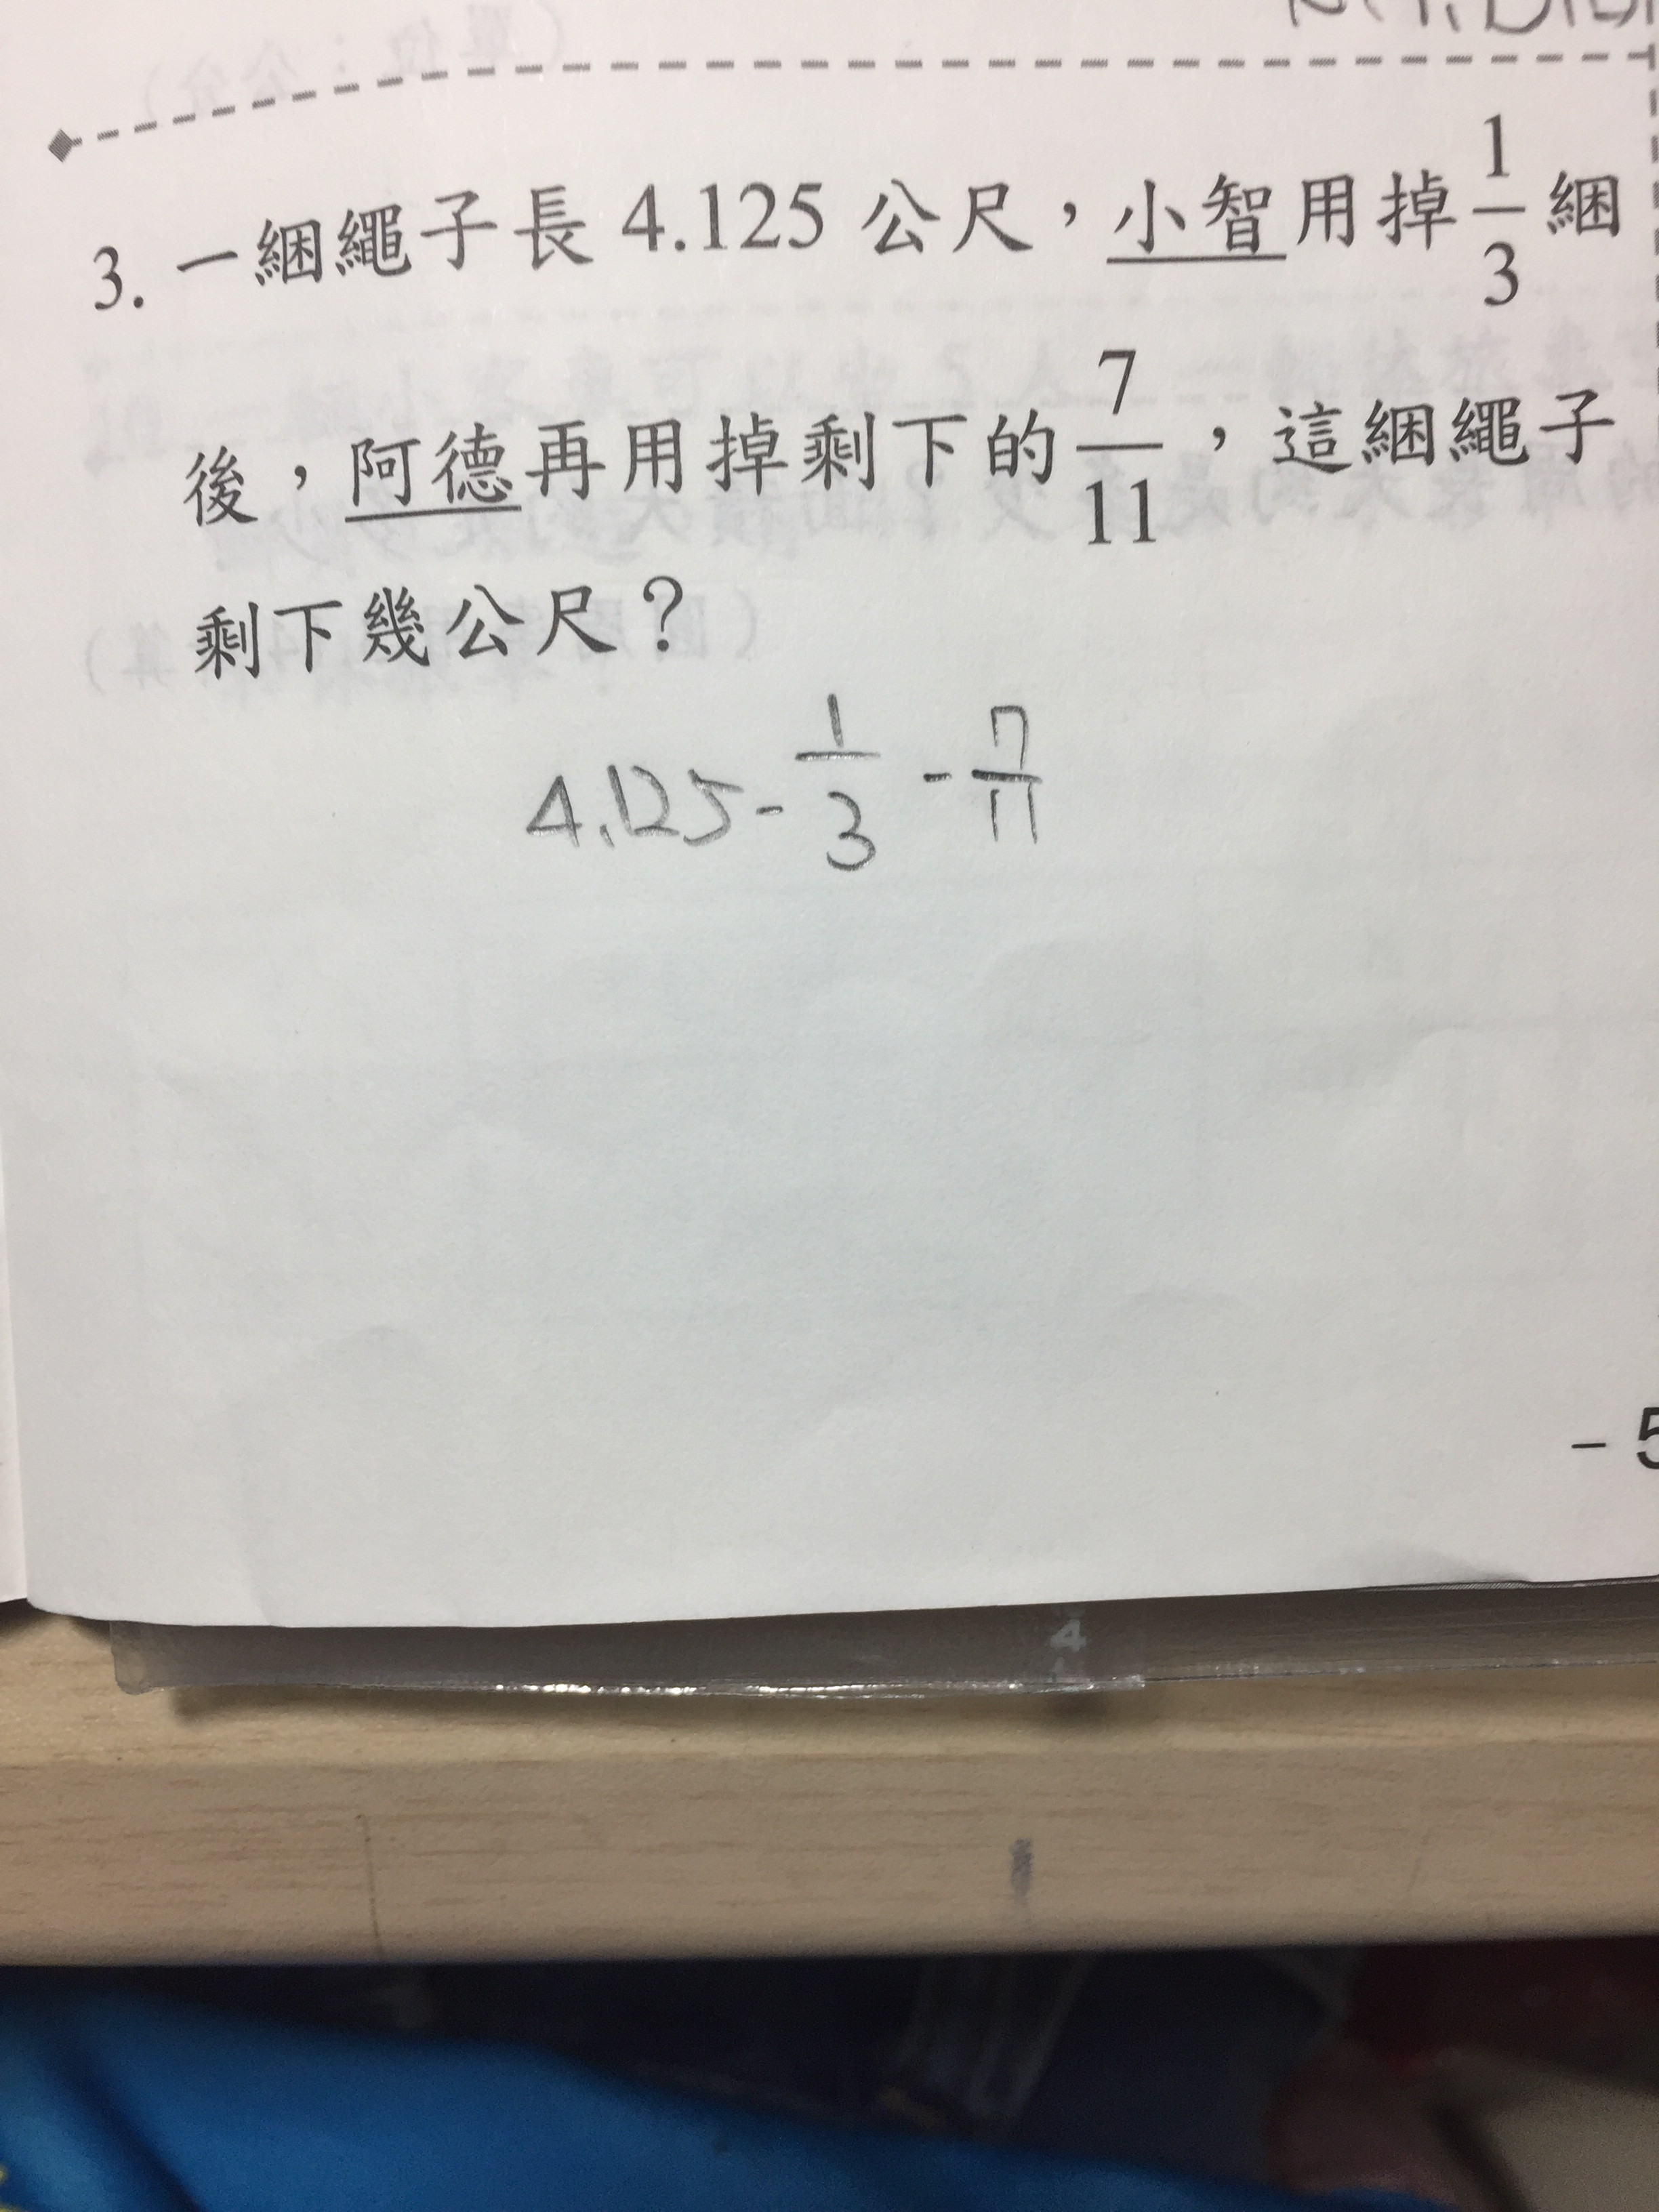 3. 一綑繩子長 4.125 公尺，小智用掉 1/3 綑
後，阿德再用掉剩下的 7/11，這綑繩子
剩下幾公尺？
4.125 - 1/3 - 7/11
- 5
4